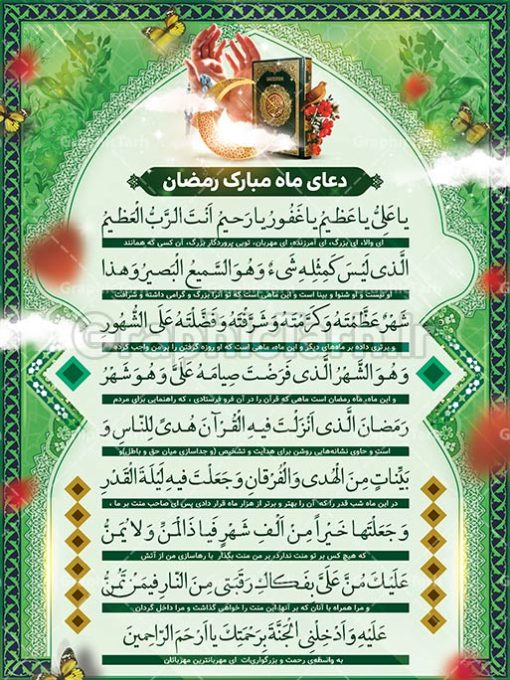 دعای ماه مبارک رمضان
یا عَلِیُّ یا عَظیمُ یا غَفُورُ یا رَحیمُ اَنْتَ الرَّبُّ الْعَظیمُ
ای والا، ای بزرگ، ای آمرزنده، ای مهربان، تویی پروردگار بزرگ، آن کسی که همانند
الَّذی لَیْسَ کَمِثْلِهِ شَیءٌ وَ هُوَ السَّمیعُ الْبَصیرُ وَ هذا
او نیست و او شنوا و بینا است و این ماهی است که تو آنرا بزرگ و گرامی داشته و شرافت
شَهْرٌ عَظَّمْتَهُ وَ کَرَّمْتَهُ وَ شَرَّفْتَهُ وَ فَضَّلْتَهُ عَلَی الشُّهُورِ
و برتری داده بر ماه‌های دیگر و این ماه، ماهی است که او روزه گرفتن را بر من واجب کرده
وَ هُوَ الشَّهْرُ الَّذی فَرَضْتَ صِیامَهُ عَلَیَّ وَ هُوَ شَهْرُ
و این ماه، ماه رمضان است ماهی که قرآن را در آن فرو فرستادی ، که راهنمایی برای مردم
رَمَضانَ الَّذی اَنْزَلْتَ فیهِ الْقُرْآنَ هُدیً لِلنّاسِ وَ
است و حاوی نشانه‌هایی روشن برای هدایت و تشخیص (و جداسازی میان حق و باطل)و
بَیِّناتٍ مِنَ الْهُدی وَ الْفُرْقانِ وَ جَعَلْتَ فیهِ لَیْلَةَ الْقَدْرِ
در این ماه شب قدر را که آن را بهتر و برتر از هزار ماه قرار دادی پس ای صاحب منت بر ما ،
وَ جَعَلْتَها خَیْراً مِنْ اَلْفِ شَهْرٍ فَیا ذَالْمَنِّ وَ لا یُمَنُّ
که هیچ کس بر تو منت ندارد، بر من منت بگذار با رهاسازی من از آتش
عَلَیْكَ مُنَّ عَلَیَّ بِفَکاكِ رَقَبَتی مِنَ النّارِ فیمَنْ تَمُنُّ
و مرا همراه با آنان که بر آنها این منت را خواهی گذاشت و مرا داخل گردان
عَلَیْهِ وَ اَدْخِلْنِی الْجَنَّةَ بِرَحْمَتِكَ یا اَرْحَمَ الرّاحِمینَ
به واسطه‌ی رحمت و بزرگواری‌ات ای مهربانترین مهربانان